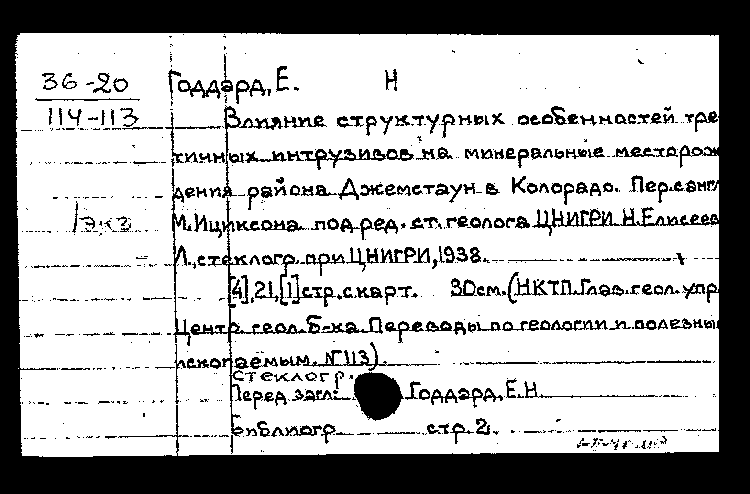 36-20 Годдард, Е. Н
114-113 Влияние структурных особенностей тре
тичных интрузивов на минеральные месторож
дения района Джемстаун в Колорадо. Пер.с англ
1экз М.Ициксона под ред. ст. геолога ЦНИГРИ Н.Елисеев
Л., стеклогр. при ЦНИГРИ, 1938.
[4], 21, [1] стр. с карт. 30см. (НКТП. Глав. геол. упр
Центр. геол. б-ка. Переводы по геологии и полезны
ископаемым. №113).
стеклогр.
Перед загл: Годдард, Е. Н.
Библиогр стр. 2.